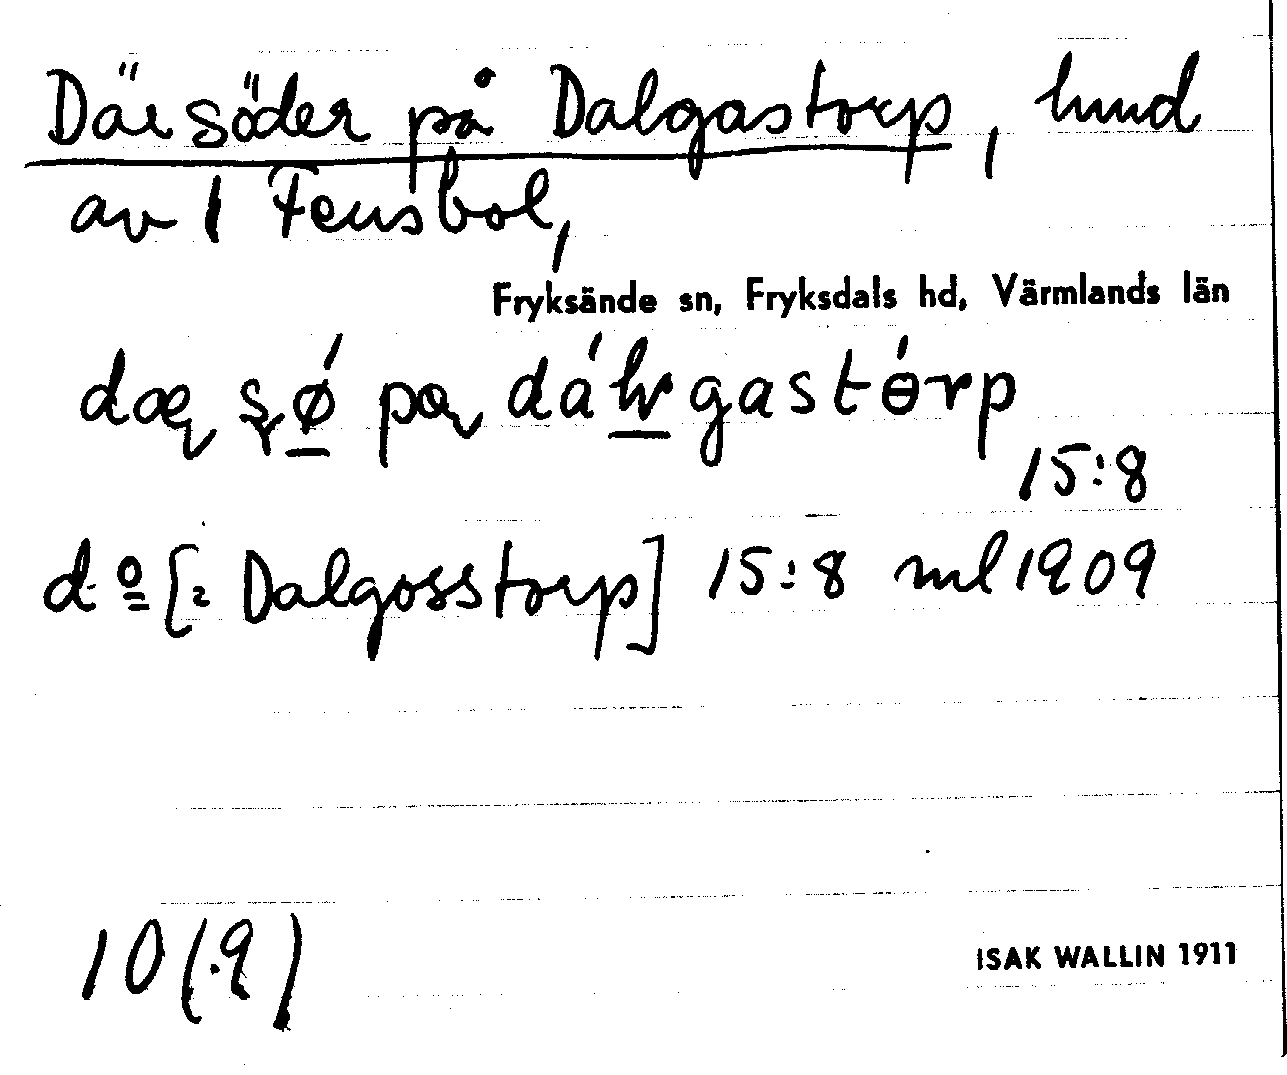 Där söder på Dalgastorp, hmd
av 1 Fensbol,
Fryksände sn, Fryksdals hd, Värmlands län
dæ sø på dálgastórp
15:8
do [: Dalgosstorp] 15:8 ml 1909
10 (.9)
ISAK WALLIN 1911